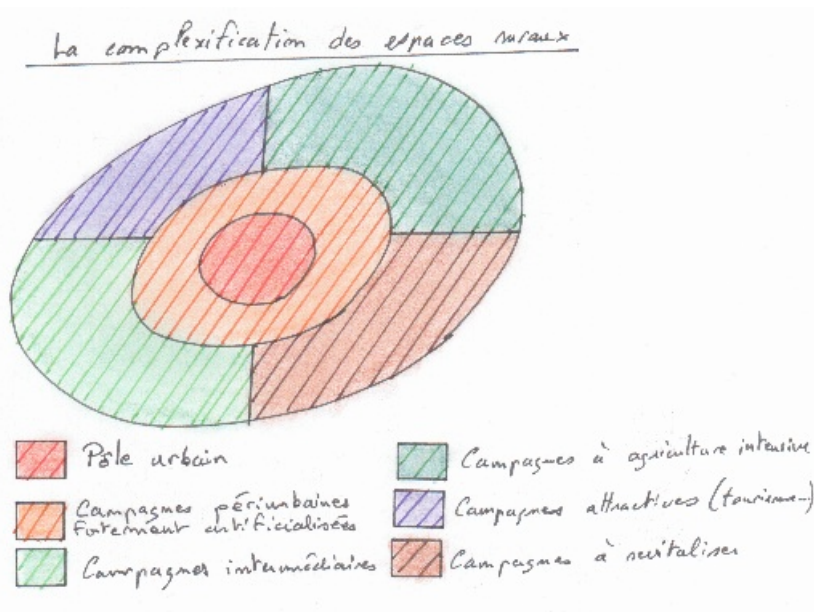 La complexification des espaces ruraux
Pôle urbain
Campagnes périurbaines
fortement artificialisées
Campagnes intermédiaires
Campagnes à agriculture intensive
Campagnes attractives (tourisme...)
Campagnes à revitaliser